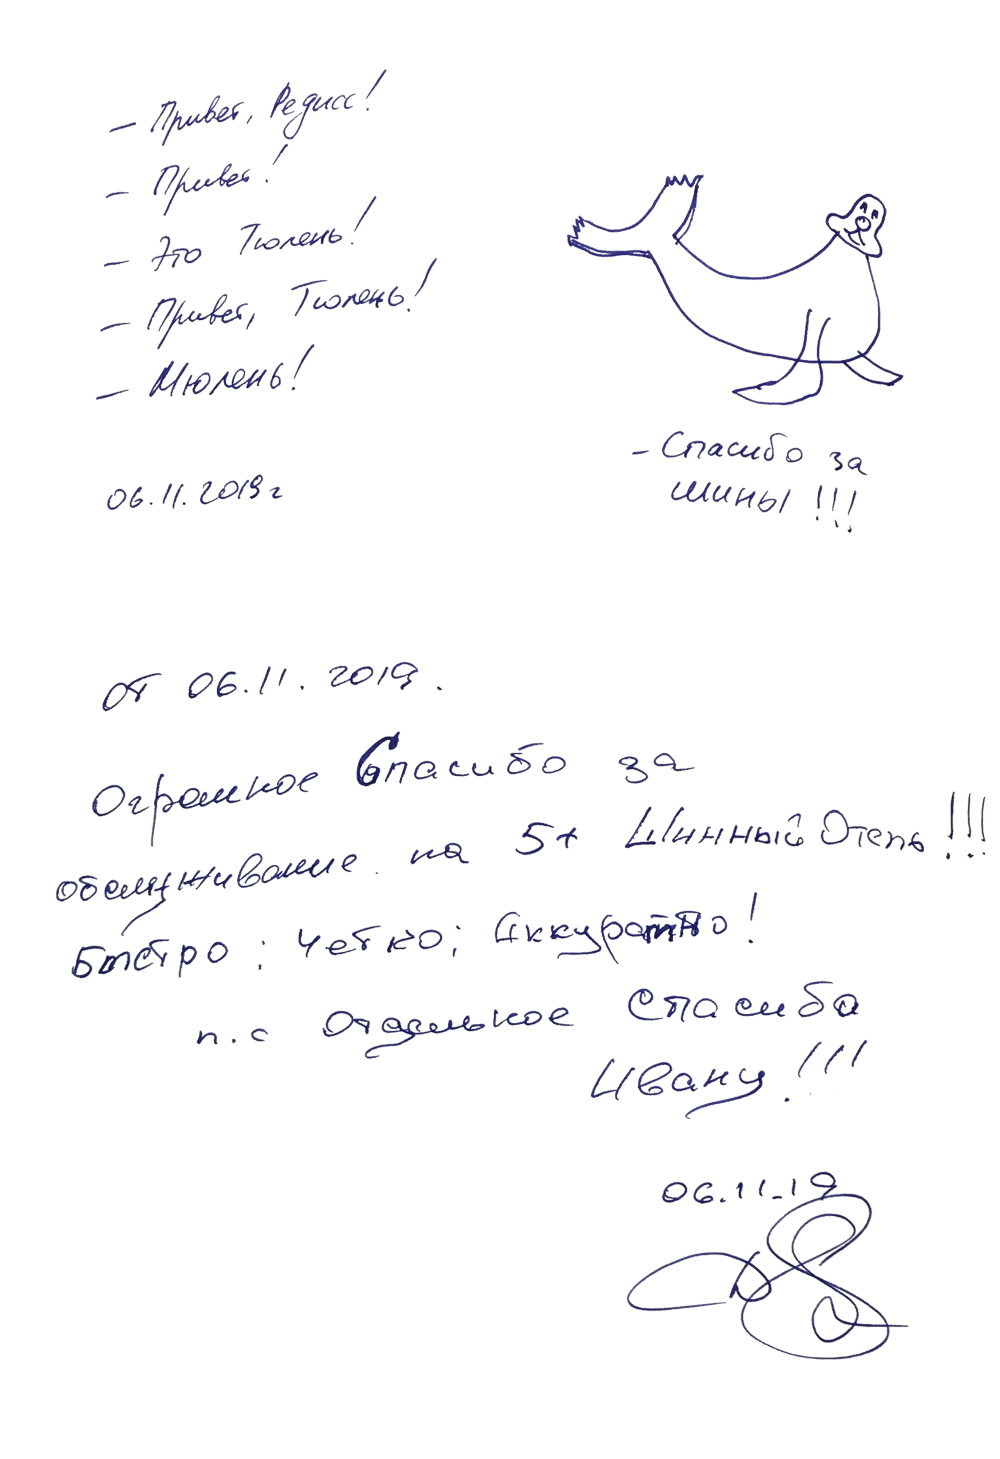 – Привет, Редисс!
– Привет!
– Это Тюлень!
– Привет, Тюлень!
– Мюлень!
06.11.2019г
– Спасибо за
шины!!!
от 06.11.2019.
Огромное Спасибо за
обслуживание на 5+ Шинный Отель!!!
Быстро; Четко; Аккуратно!
п.с Отдельное Спасибо
Ивану!!!
06.11.19